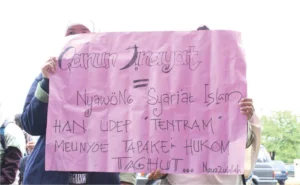 Qanun Jinayat
=
Nyawöng Syariat Islam
HAN UDEP "TENTRAM"
MEUNYOE TAPAKEK HUKOM
TAGHUT ...